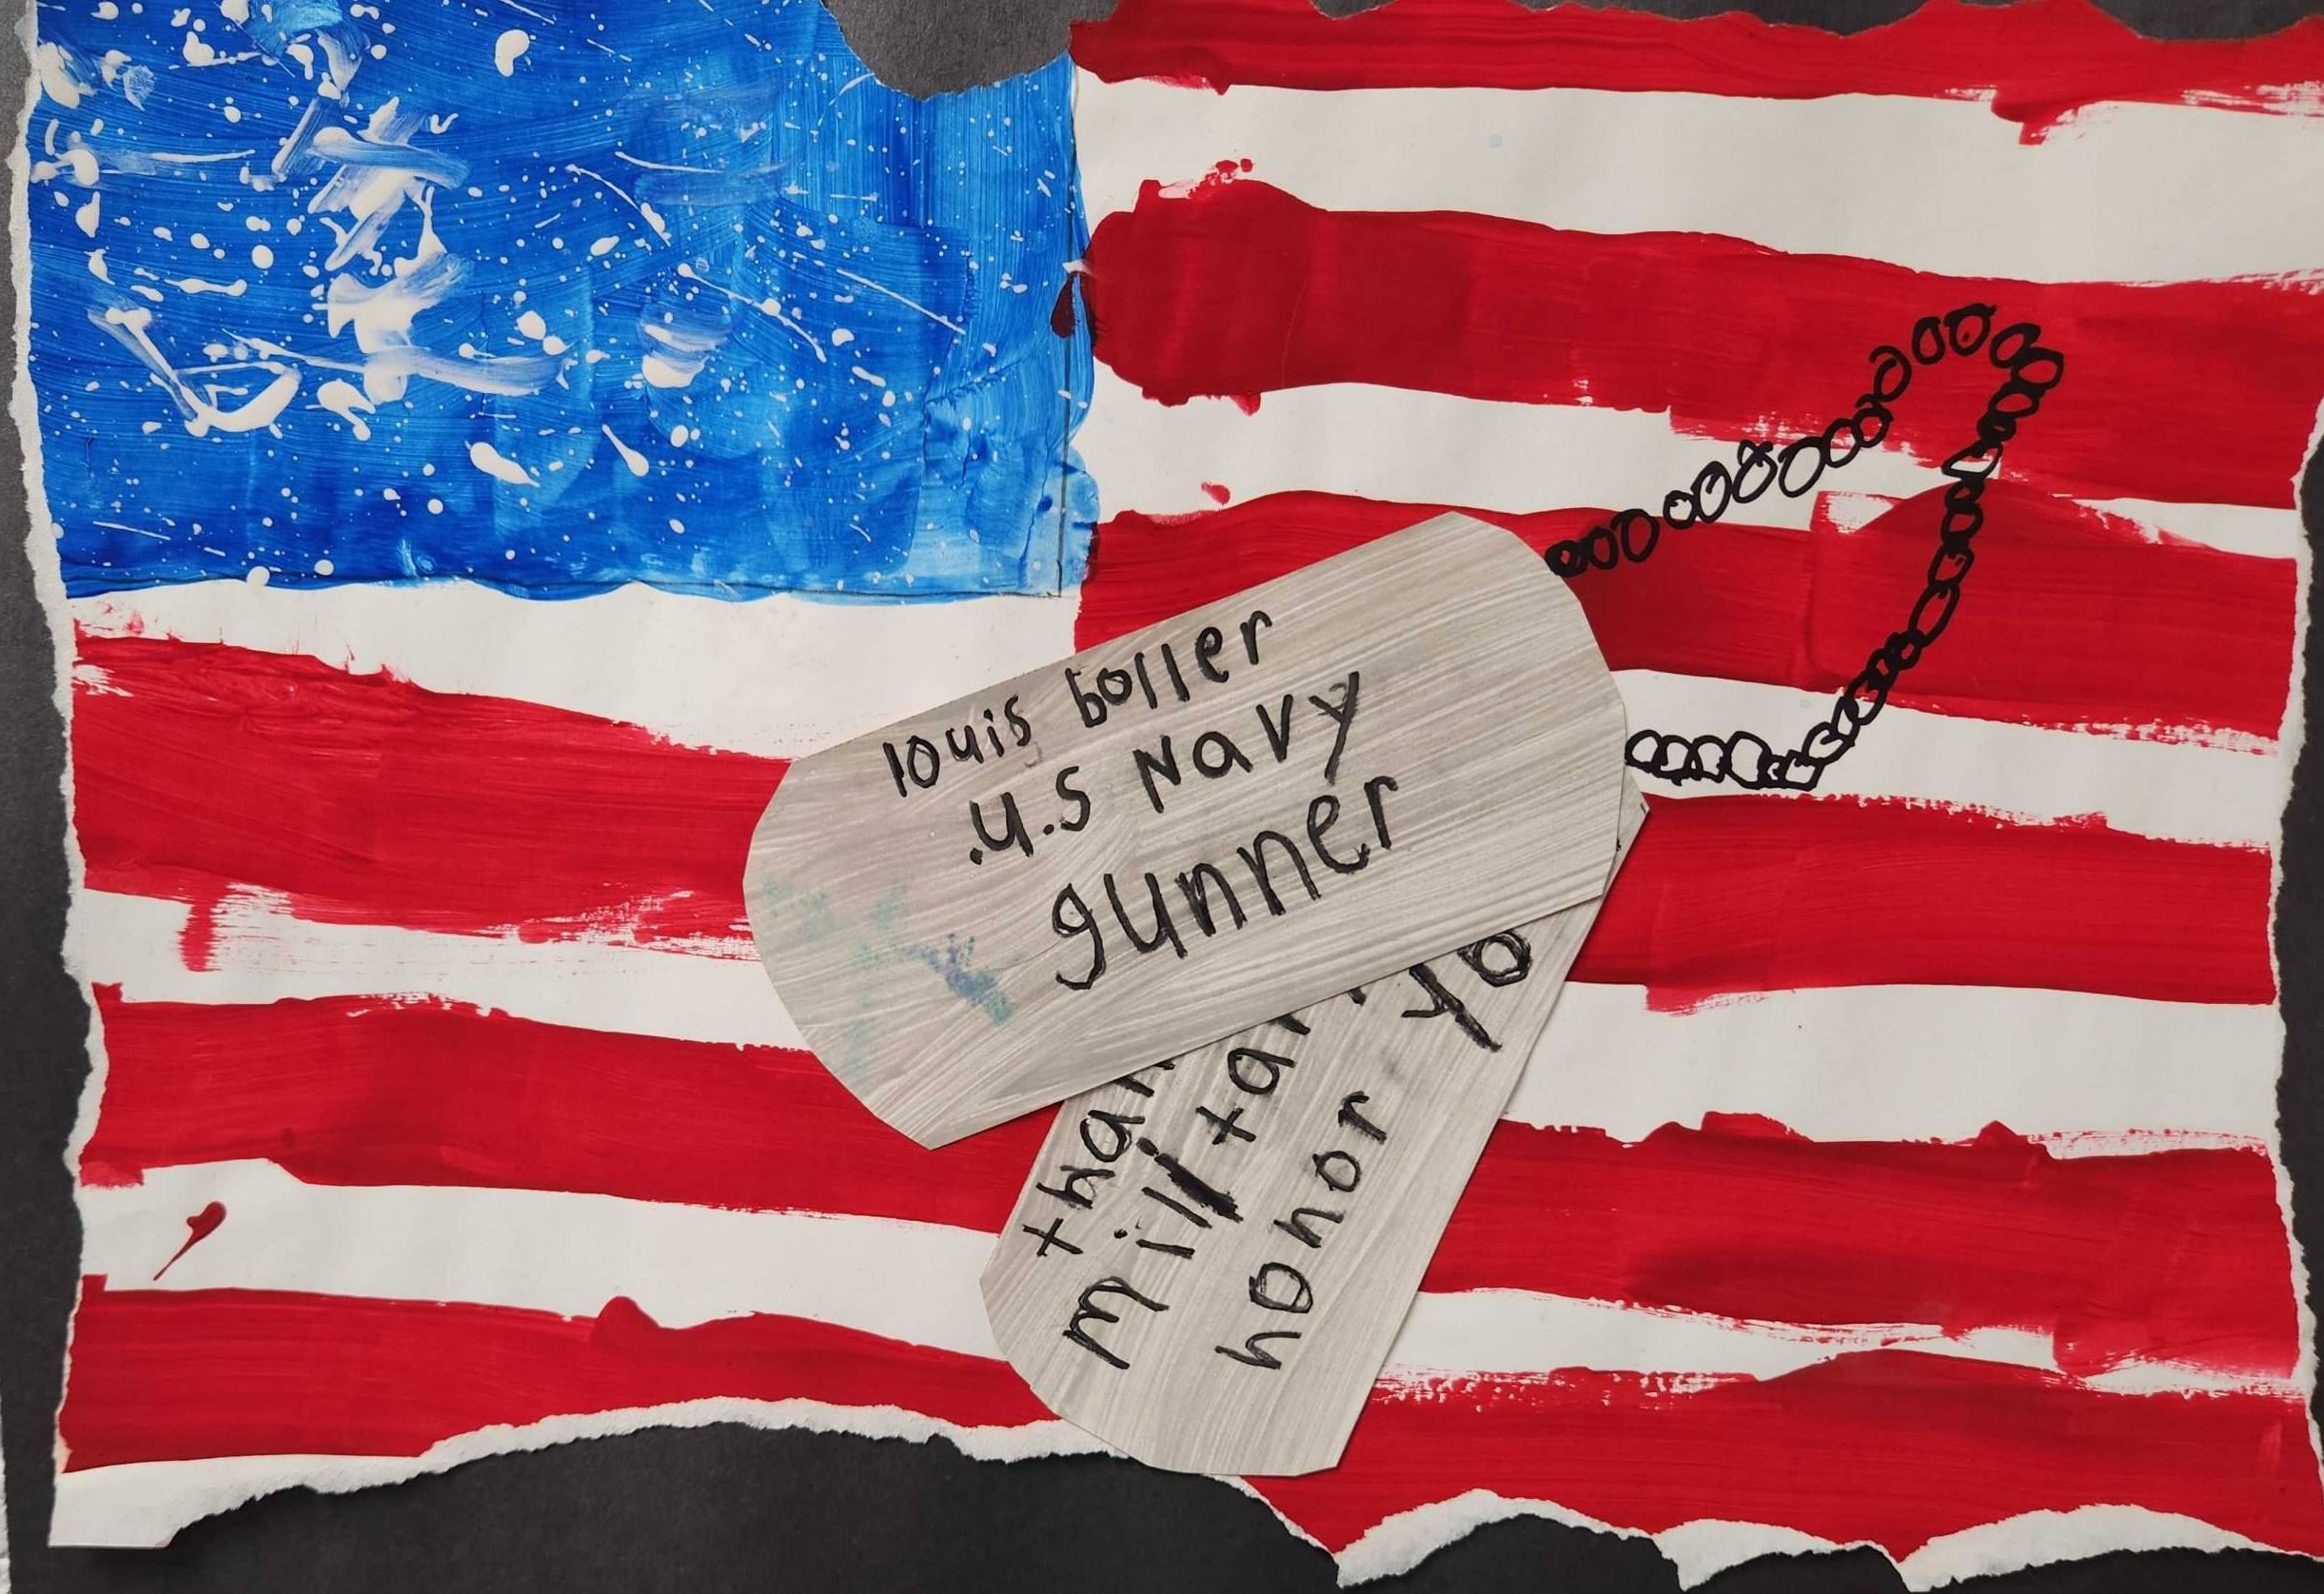 louis boller
.U.S Navy
gunner
than
militar
honor yo